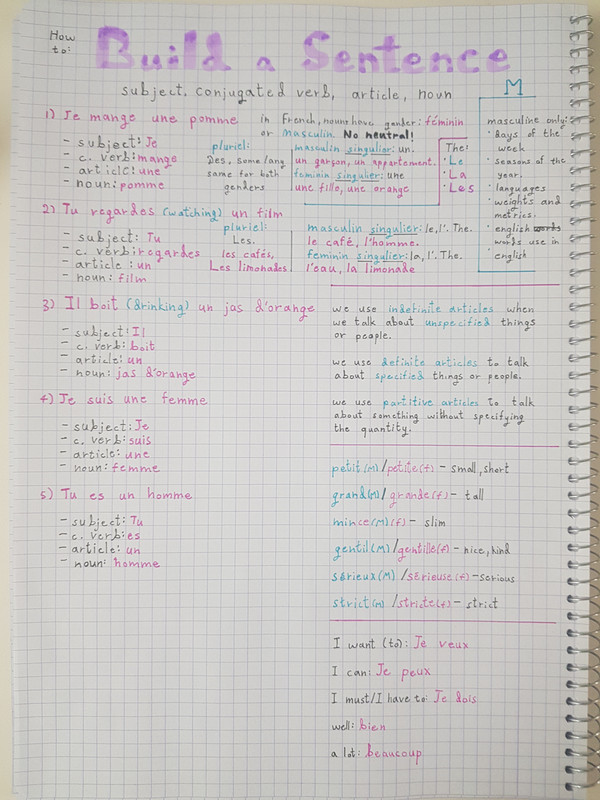 How to:
Build a Sentence
subject, conjugated verb, article, noun
1) Je mange une pomme
- subject: Je
- c. verb: mange
- article: une
- noun: pomme
in French, nouns have gender: féminin
or masculin. No neutral!
pluriel:
Des, some/any
same for both
genders
masculin singulier: un.
un garçon, un appartement.
feminin singulier: une
une fille, une orange
The:
· Le
· La
· Les
M
masculine only:
· days of the
week
· seasons of the
year.
· languages
· weights and
metrics.
· english words
words use in
english
2) Tu regardes (watching) un film
- subject: Tu
- c. verb: regardes
- article: un
- noun: film
pluriel:
Les.
les cafés,
Les limonades
masculin singulier: le, l'. The.
le café, l'homme.
feminin singulier: la, l'. The.
l'eau, la limonade
3) Il boit (drinking) un jas d'orange
- subject: Il
- c. verb: boit
- article: un
- noun: jas d'orange
we use indefinite articles when
we talk about unspecified things
or people.
we use definite articles to talk
about specified things or people.
we use partitive articles to talk
about something without specifying
the quantity.
4) Je suis une femme
- subject: Je
- c. verb: suis
- article: une
- noun: femme
5) Tu es un homme
- subject: Tu
- c. verb: es
- article: un
- noun: homme
petit(M)/petite(f) - small, short
grand(M)/grande(f) - tall
mince(M)(f) - slim
gentil(M)/gentille(f) - nice, kind
sérieux(M)/sérieuse(f) - serious
strict(M)/stricte(f) - strict
I want (to): Je veux
I can: Je peux
I must/I have to: Je dois
well: bien
a lot: beaucoup